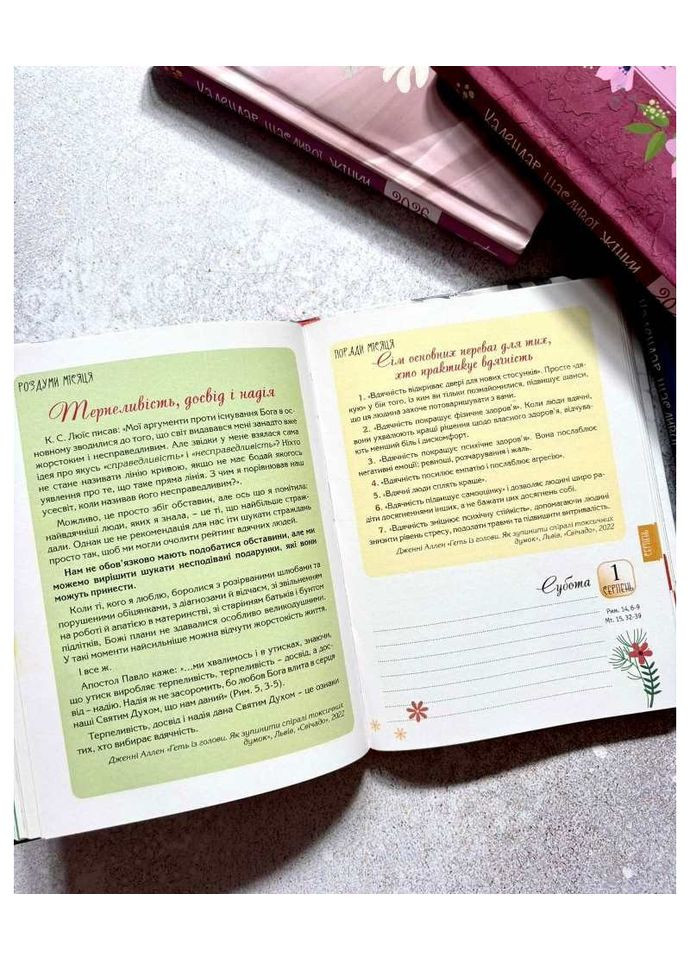 Календар щасливої жінки
2026
Календар щасливої жінки
РОЗДУМИ МІСЯЦЯ
Терпеливість, досвід і надія
К. С. Люїс писав: «Мої аргументи проти існування Бога в ос-
новному зводилися до того, що світ видавався мені занадто вже
жорстоким і несправедливим. Але звідки у мене взялася сама
ідея про якусь «справедливість» і «несправедливість»? Ніхто
не стане називати лінію кривою, якщо не має бодай якогось
уявлення про те, що таке пряма лінія. З чим я порівнював наш
усесвіт, коли називав його несправедливим?».
Можливо, це просто збіг обставин, але ось що я помітила:
найвдячніші люди, яких я знала, – це ті, що найбільше страж-
дали. Однак це не рекомендація для нас іти шукати страждань
просто так, щоб ми могли очолити рейтинг вдячних людей.
Нам не обов'язково мають подобатися обставини, але ми
можемо вирішити шукати несподівані подарунки, які вони
можуть принести.
Коли ті, кого я люблю, боролися з розірваними шлюбами та
порушеними обіцянками, з діагнозами й відчаєм, зі звільненням
на роботі й апатією в материнстві, зі старінням батьків і бунтом
підлітків, Божі плани не здавалися особливо великодушними.
У такі моменти найсильніше можна відчути жорстокість життя.
І все ж.
Апостол Павло каже: «...ми хвалимось і в утисках, знаючи,
що утиск виробляє терпеливість, терпеливість – досвід, а дос-
від – надію. Надія ж не засоромить, бо любов Бога влита в серця
наші Святим Духом, що нам даний» (Рим. 5, 3-5).
Терпеливість, досвід і надія дана Святим Духом – це ознаки
тих, хто вибирає вдячність.
Дженні Аллен «Геть із голови. Як зупинити спіралі токсичних
думок», Львів, «Свічадо», 2022
ПОРАДИ МІСЯЦЯ
Сім основних переваг для тих,
хто практикує вдячність
1. «Вдячність відкриває двері для нових стосунків». Просте «дя-
кую» у бік того, із ким ви тільки познайомилися, підвищує шанси,
що ця людина захоче потоваришувати з вами.
2. «Вдячність покращує фізичне здоров'я». Коли люди вдячні,
вони ухвалюють кращі рішення щодо власного здоров'я, відчува-
ють менший біль і дискомфорт.
3. «Вдячність покращує психічне здоров'я». Вона послаблює
негативні емоції: ревнощі, розчарування і жаль.
4. «Вдячність посилює емпатію і послаблює агресію».
5. «Вдячні люди сплять краще».
6. «Вдячність підвищує самооцінку» і дозволяє людині щиро ра-
діти досягненнями інших, а не бажати цих досягнень собі.
7. «Вдячність зміцнює психічну стійкість», допомагаючи людині
знизити рівень стресу, подолати травми та підвищити витривалість.
Дженні Аллен «Геть із голови. Як зупинити спіралі токсичних
думок», Львів, «Свічадо», 2022
СЕРПЕНЬ
Субота
1
СЕРПЕНЬ
Рим. 14, 6-9
Мт. 15, 32-39